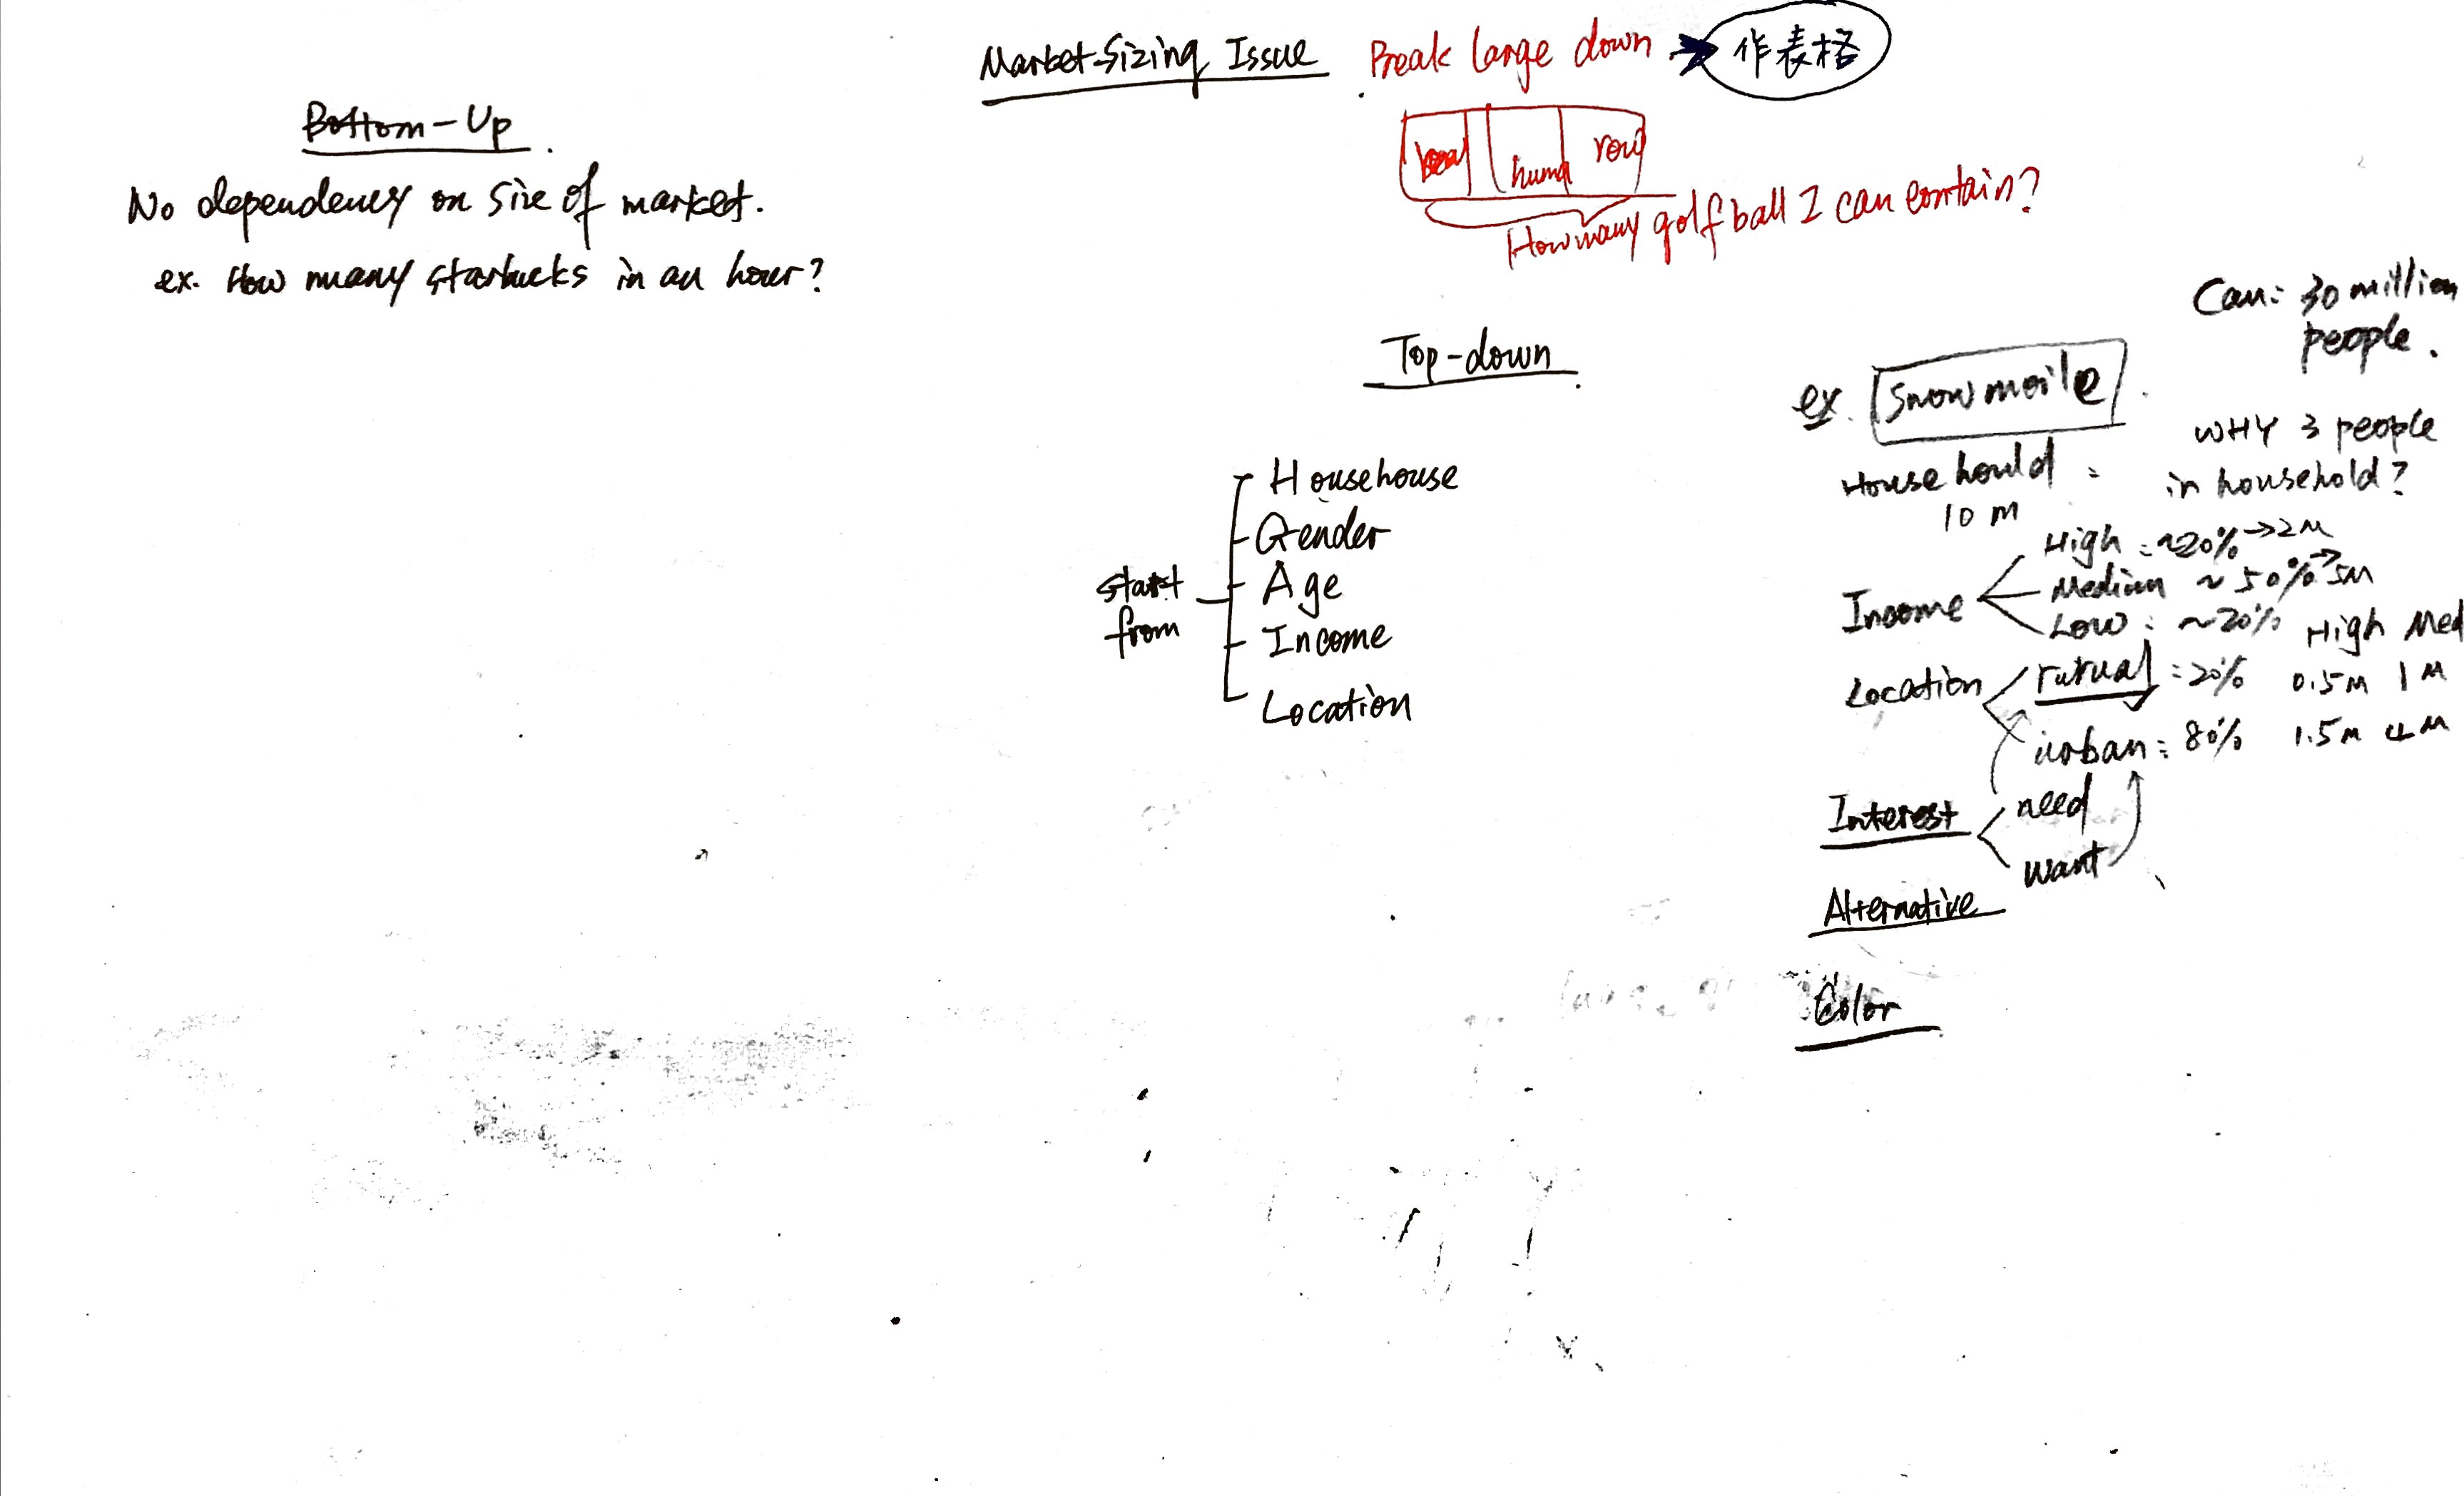 Market-Sizing Issue
Break large down → 作表格
row
How many golf ball I can contain?
Bottom-Up
No dependency on Size of market.
ex. How many starbucks in an hour?
Top-down
start
from
Househouse
Gender
Age
Income
Location
Can: 30 million
people.
ex. Snowmoile
WHY 3 people
in household?
House hould :
10 M
Income
High : ~20% → 2M
Medium ~ 50% → 5M
Low : ~20%
High Med
Location
rurual : 20% 0.5M 1M
urban : 80% 1.5M 4M
Interest
need
want
Alternative
Color